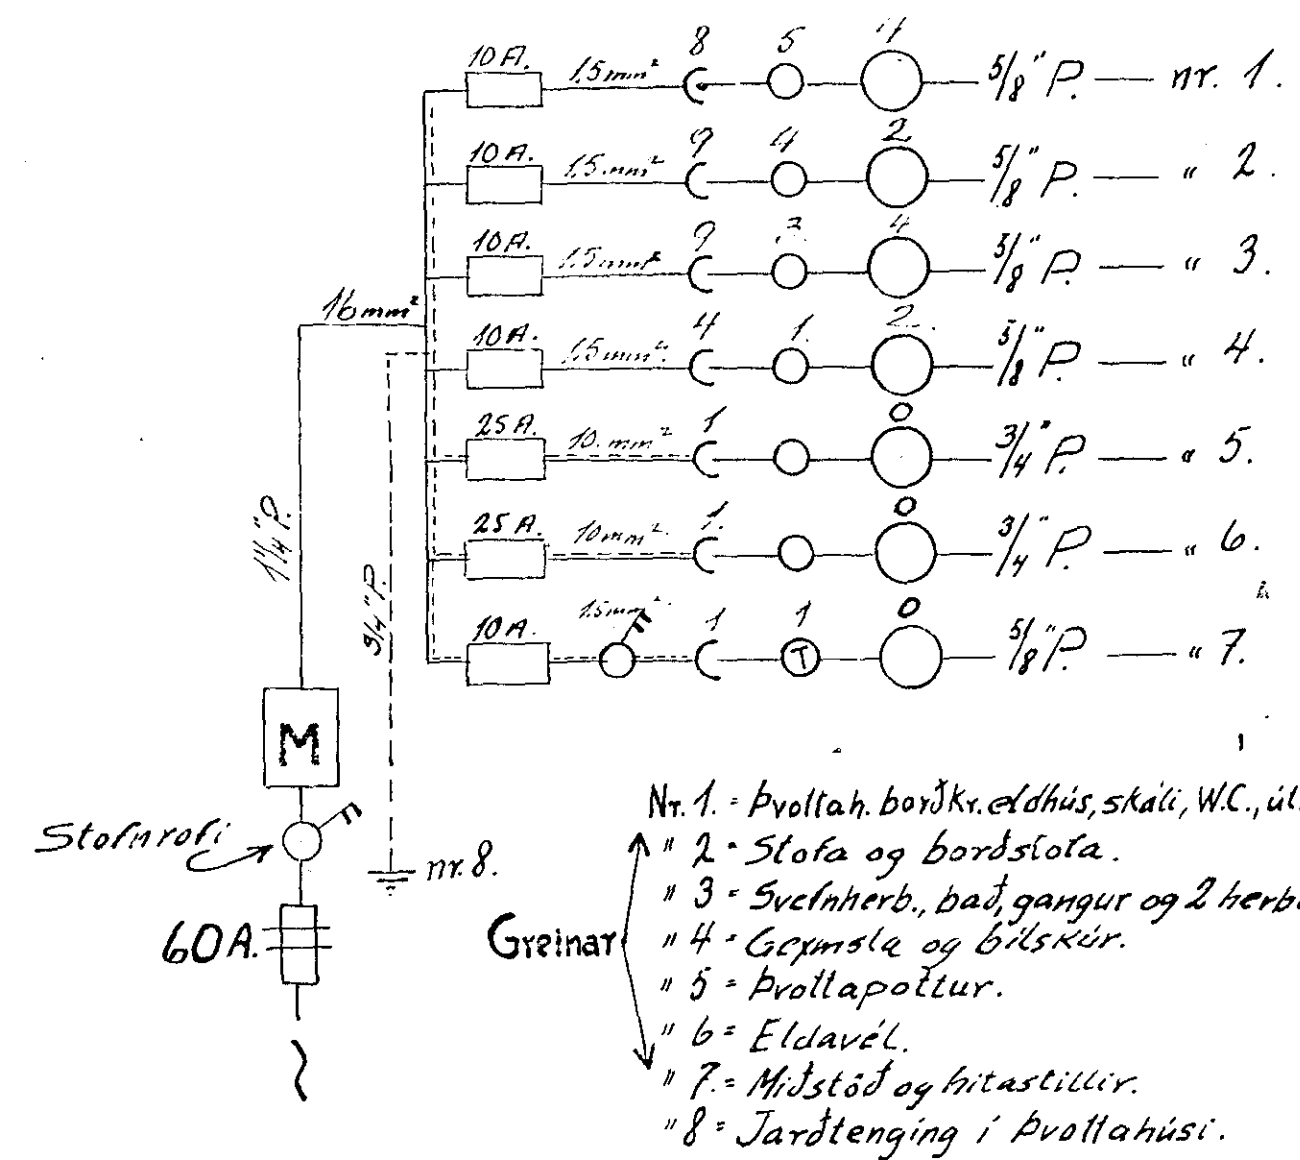 10 A. 1,5 mm² 8 5 4 5/8" P. — nr. 1.
10 A. 1,5 mm² 9 4 2 5/8" P. — " 2.
10 A. 1,5 mm² 9 3 4 5/8" P. — " 3.
16 mm²
10 A. 1,5 mm². 4 1. 2. 5/8" P. — " 4.
25 A. 10. mm² 1 0 3/4" P. — " 5.
25 A. 10 mm². 1. 0 3/4" P. — " 6.
10 A. 1,5 mm². 1 1 T 0 5/8" P. — " 7.
1 1/4" P.
3/4" P.
M
Stofnrofi
nr. 8.
60 A.
Greinar
Nr. 1. = Þvottah. borðkr. eldhús, skáli, W.C., úl.
" 2 = Stofa og borðstofa.
" 3 = Svefnherb., bað, gangur og 2 herb.
" 4 = Geymsla og bílskúr.
" 5 = Þvottapottur.
" 6 = Eldavél.
" 7. = Miðstöð og hitastillir.
" 8 = Jarðtenging í Þvottahúsi.